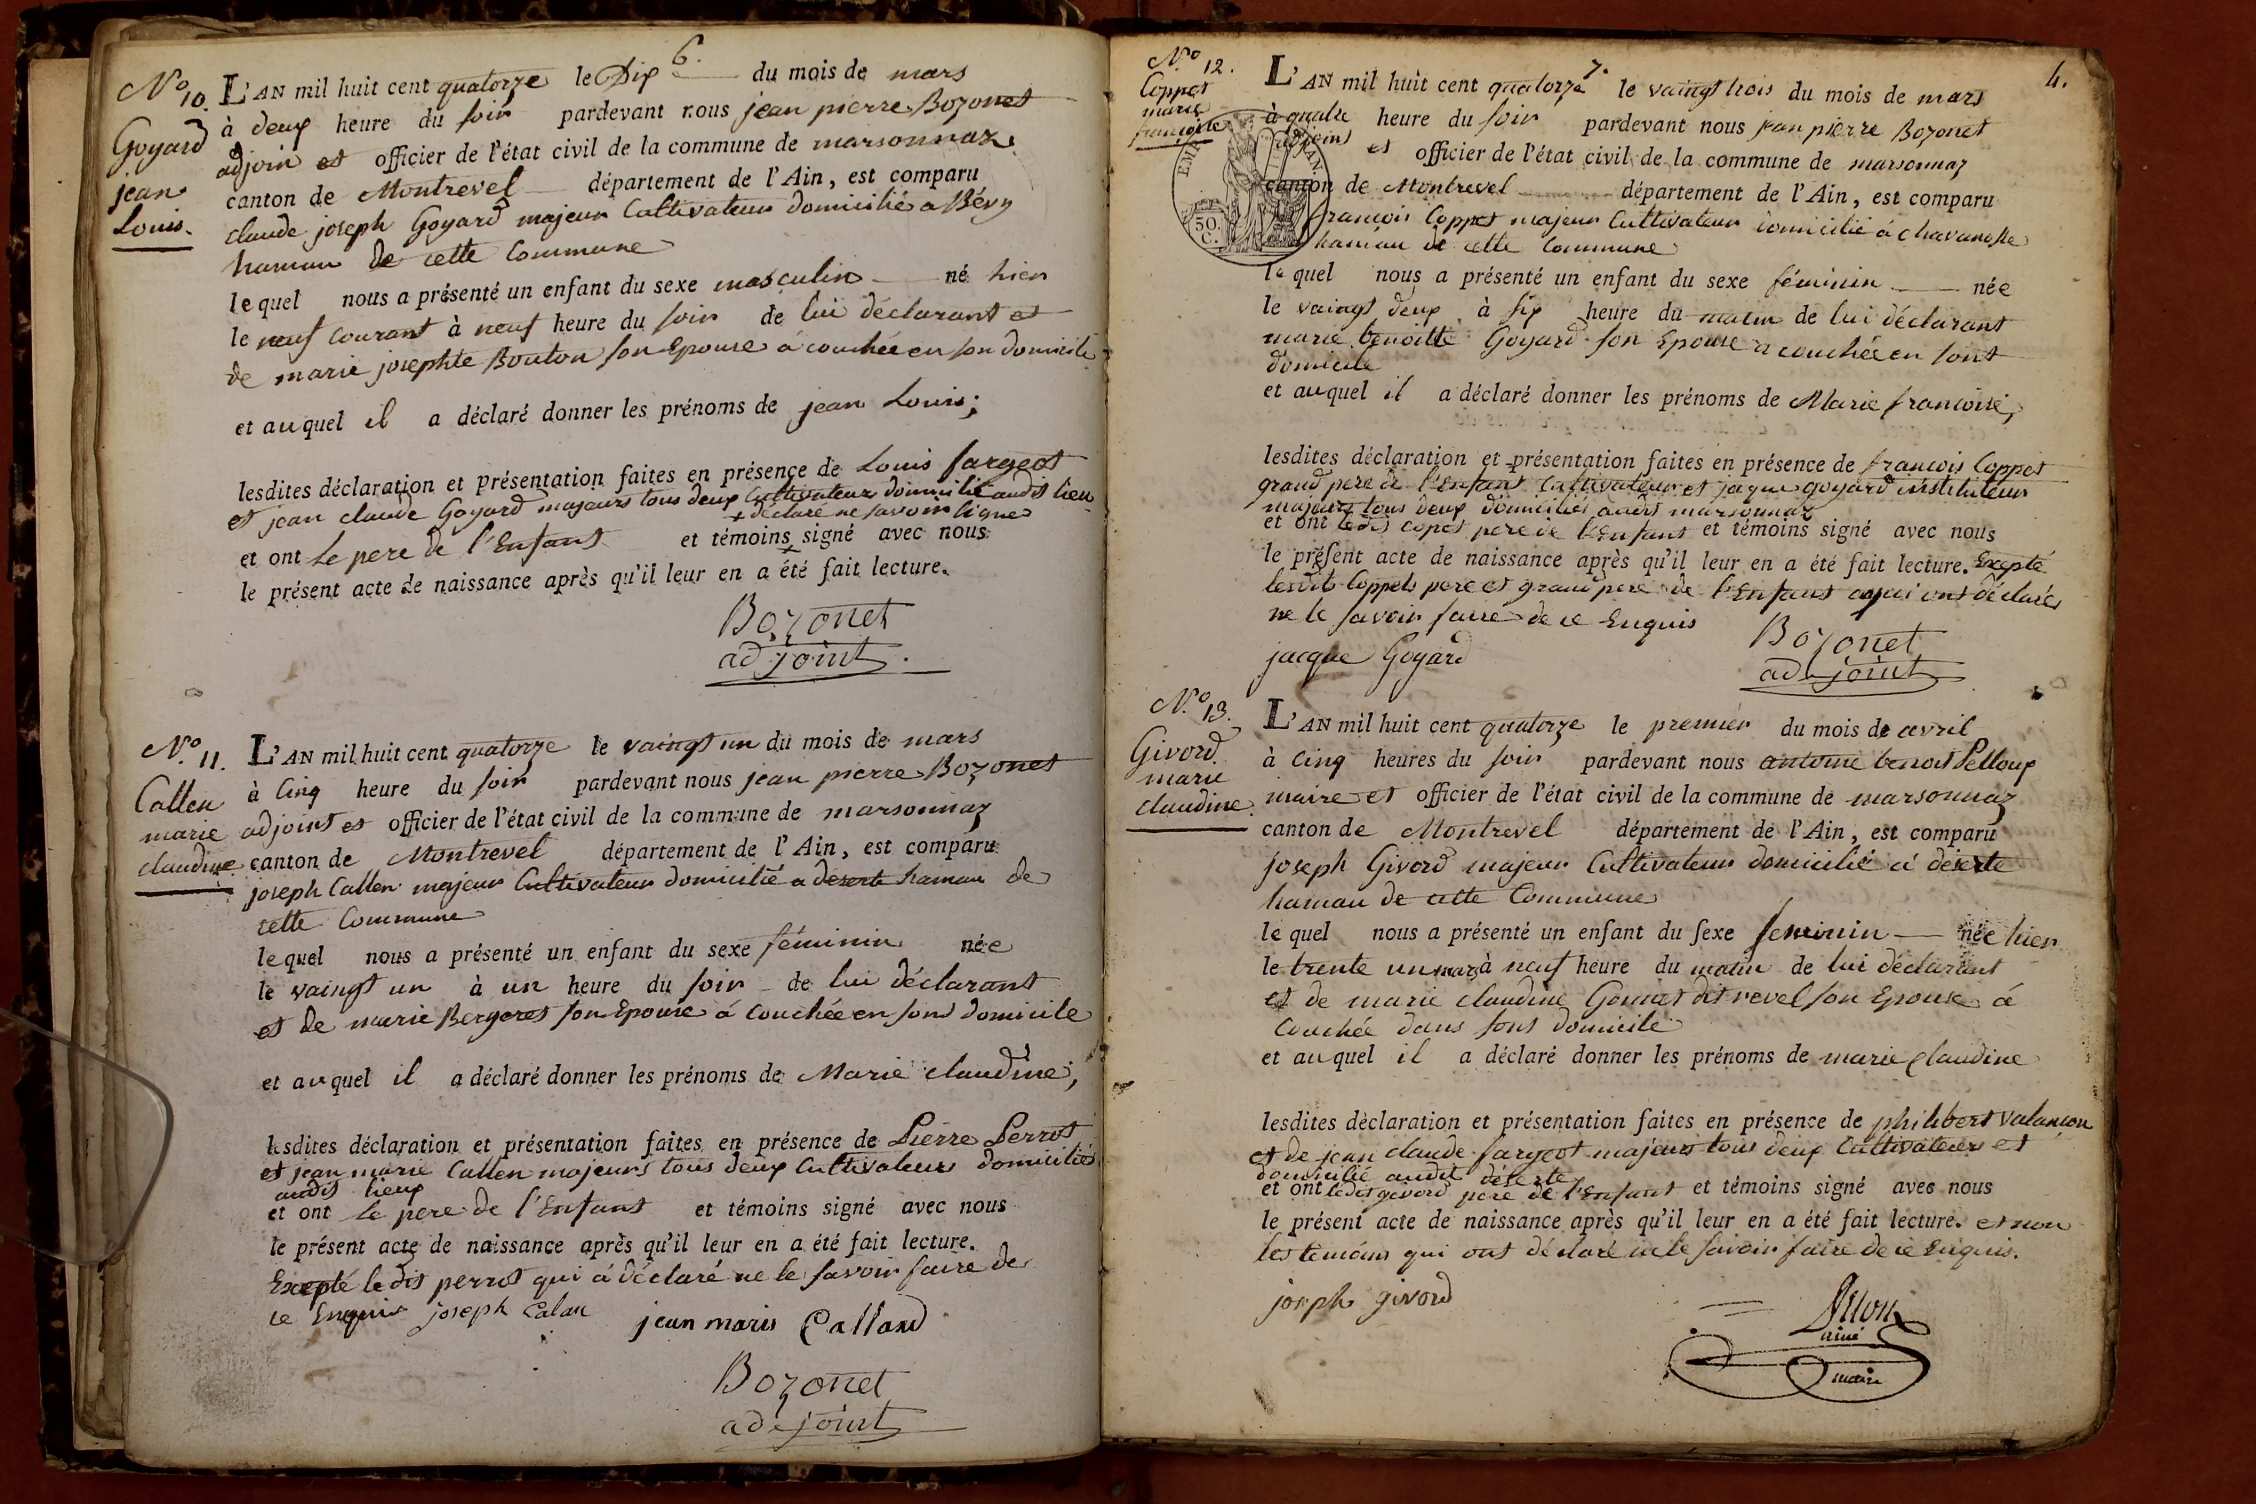 6.
N.o 10.
Goyard
jean
Louis.
L'AN mil huit cent quatorze le Dix du mois de mars
à deux heure du soir pardevant nous jean pierre Bozonet
adjoin et officier de l'état civil de la commune de marsonnax
canton de Montrevel département de l'Ain, est comparu
claude joseph Goyard majeur Cultivateur domicilié a Bévy
hamau de cette Commune
lequel nous a présenté un enfant du sexe masculin né hier
le neuf courant à neuf heure du soir de lui déclarant et
de marie josephte Bouton son Epouse a couchée en son domicile
et auquel il a déclaré donner les prénoms de jean Louis;
lesdites déclaration et présentation faites en présence de Louis fargeot
et jean claude Goyard majeurs tous deux Cultivateurs domicilié audit lieu
+ déclaré ne savoir signer
et ont le pere de l'Enfant et témoins + signé avec nous
le présent acte de naissance après qu'il leur en a été fait lecture.
Bozonet
adjoint
N.o 11.
Callen
marie
claudine
L'AN mil huit cent quatorze le vaingt un du mois de mars
à Cinq heure du soir pardevant nous jean pierre Bozonet
adjoint et officier de l'état civil de la commune de marsonnaz
canton de Montrevel département de l'Ain, est comparu
joseph Callen majeur Cultivateur domicilié a deserte hamau de
cette Commune
lequel nous a présenté un enfant du sexe féminin née
le vaingt un à un heure du soir de lui déclarant
et de marie Bergeret son Epouse á couchée en sond domicile
et auquel il a déclaré donner les prénoms de Marie claudine,
lesdites déclaration et présentation faites en présence de Pierre Perrot
et jean marie Callen majeurs tous deux Cultivateurs domiciliés
audit lieux
et ont le pere de l'Enfant et témoins signé avec nous
le présent acte de naissance après qu'il leur en a été fait lecture.
Excepté ledit perrot qui á déclaré ne le savoir faire de
ce Enquis joseph Calan jean marie Calland
Bozonet
adjoint
7.
4.
N.o 12.
Coppet
marie
francoise
EMP FRAN.
50
C.
L'AN mil huit cent quatorze le vaingt trois du mois de mars
à quatre heure du soir pardevant nous jean pierre Bozonet
adjoint et officier de l'état civil de la commune de marsonnaz
canton de Montrevel département de l'Ain, est comparu
francois Coppet majeur Cultivateur domicilié á chavanosse
hamau de cette Commune
lequel nous a présenté un enfant du sexe féminin née
le vaingt deux à six heure du matin de lui déclarant
marie benoitte Goyard son Epouse a couchée en sont
domicile
et auquel il a déclaré donner les prénoms de Marie francoise,
lesdites déclaration et présentation faites en présence de francois Coppet
grand pere de l'Enfant Cultivateur et jaque goyard instituteur
majeurs tous deux domiciliés audit marsonnaz
et ont ledit copet pere de l'Enfant et témoins signé avec nous
le présent acte de naissance après qu'il leur en a été fait lecture. Excepté
lesdit Coppets pere et grand pere de l'Enfant qui ont déclarés
ne le savoir faire de ce Enquis
jacque Goyard
Bozonet
adjoint
N.o 13.
Givord
marie
claudine
L'AN mil huit cent quatorze le premier du mois de avril
à Cinq heures du soir pardevant nous antoine benoit Pelloux
maire et officier de l'état civil de la commune de marsonnaz
canton de Montrevel département de l'Ain, est comparu
joseph Givord majeur Cultivateur domicilié á déserte
hamau de cette Commune
lequel nous a présenté un enfant du sexe feminin née hier
le trente un mars à neuf heure du matin de lui déclarant
et de marie claudine Gonnet dit revel son Epouse á
couchée dans sont domicile
et auquel il a déclaré donner les prénoms de marie claudine
lesdites déclaration et présentation faites en présence de philibert valancon
et de jean claude fargeot majeurs tous deux Cultivateurs et
domicilié audit déserte
et ont ledit givord pere de l'Enfant et témoins signé avec nous
le présent acte de naissance après qu'il leur en a été fait lecture. et non
les temoins qui ont déclaré ne le savoir faire de ce Enquis.
joseph givord
ainé
maire